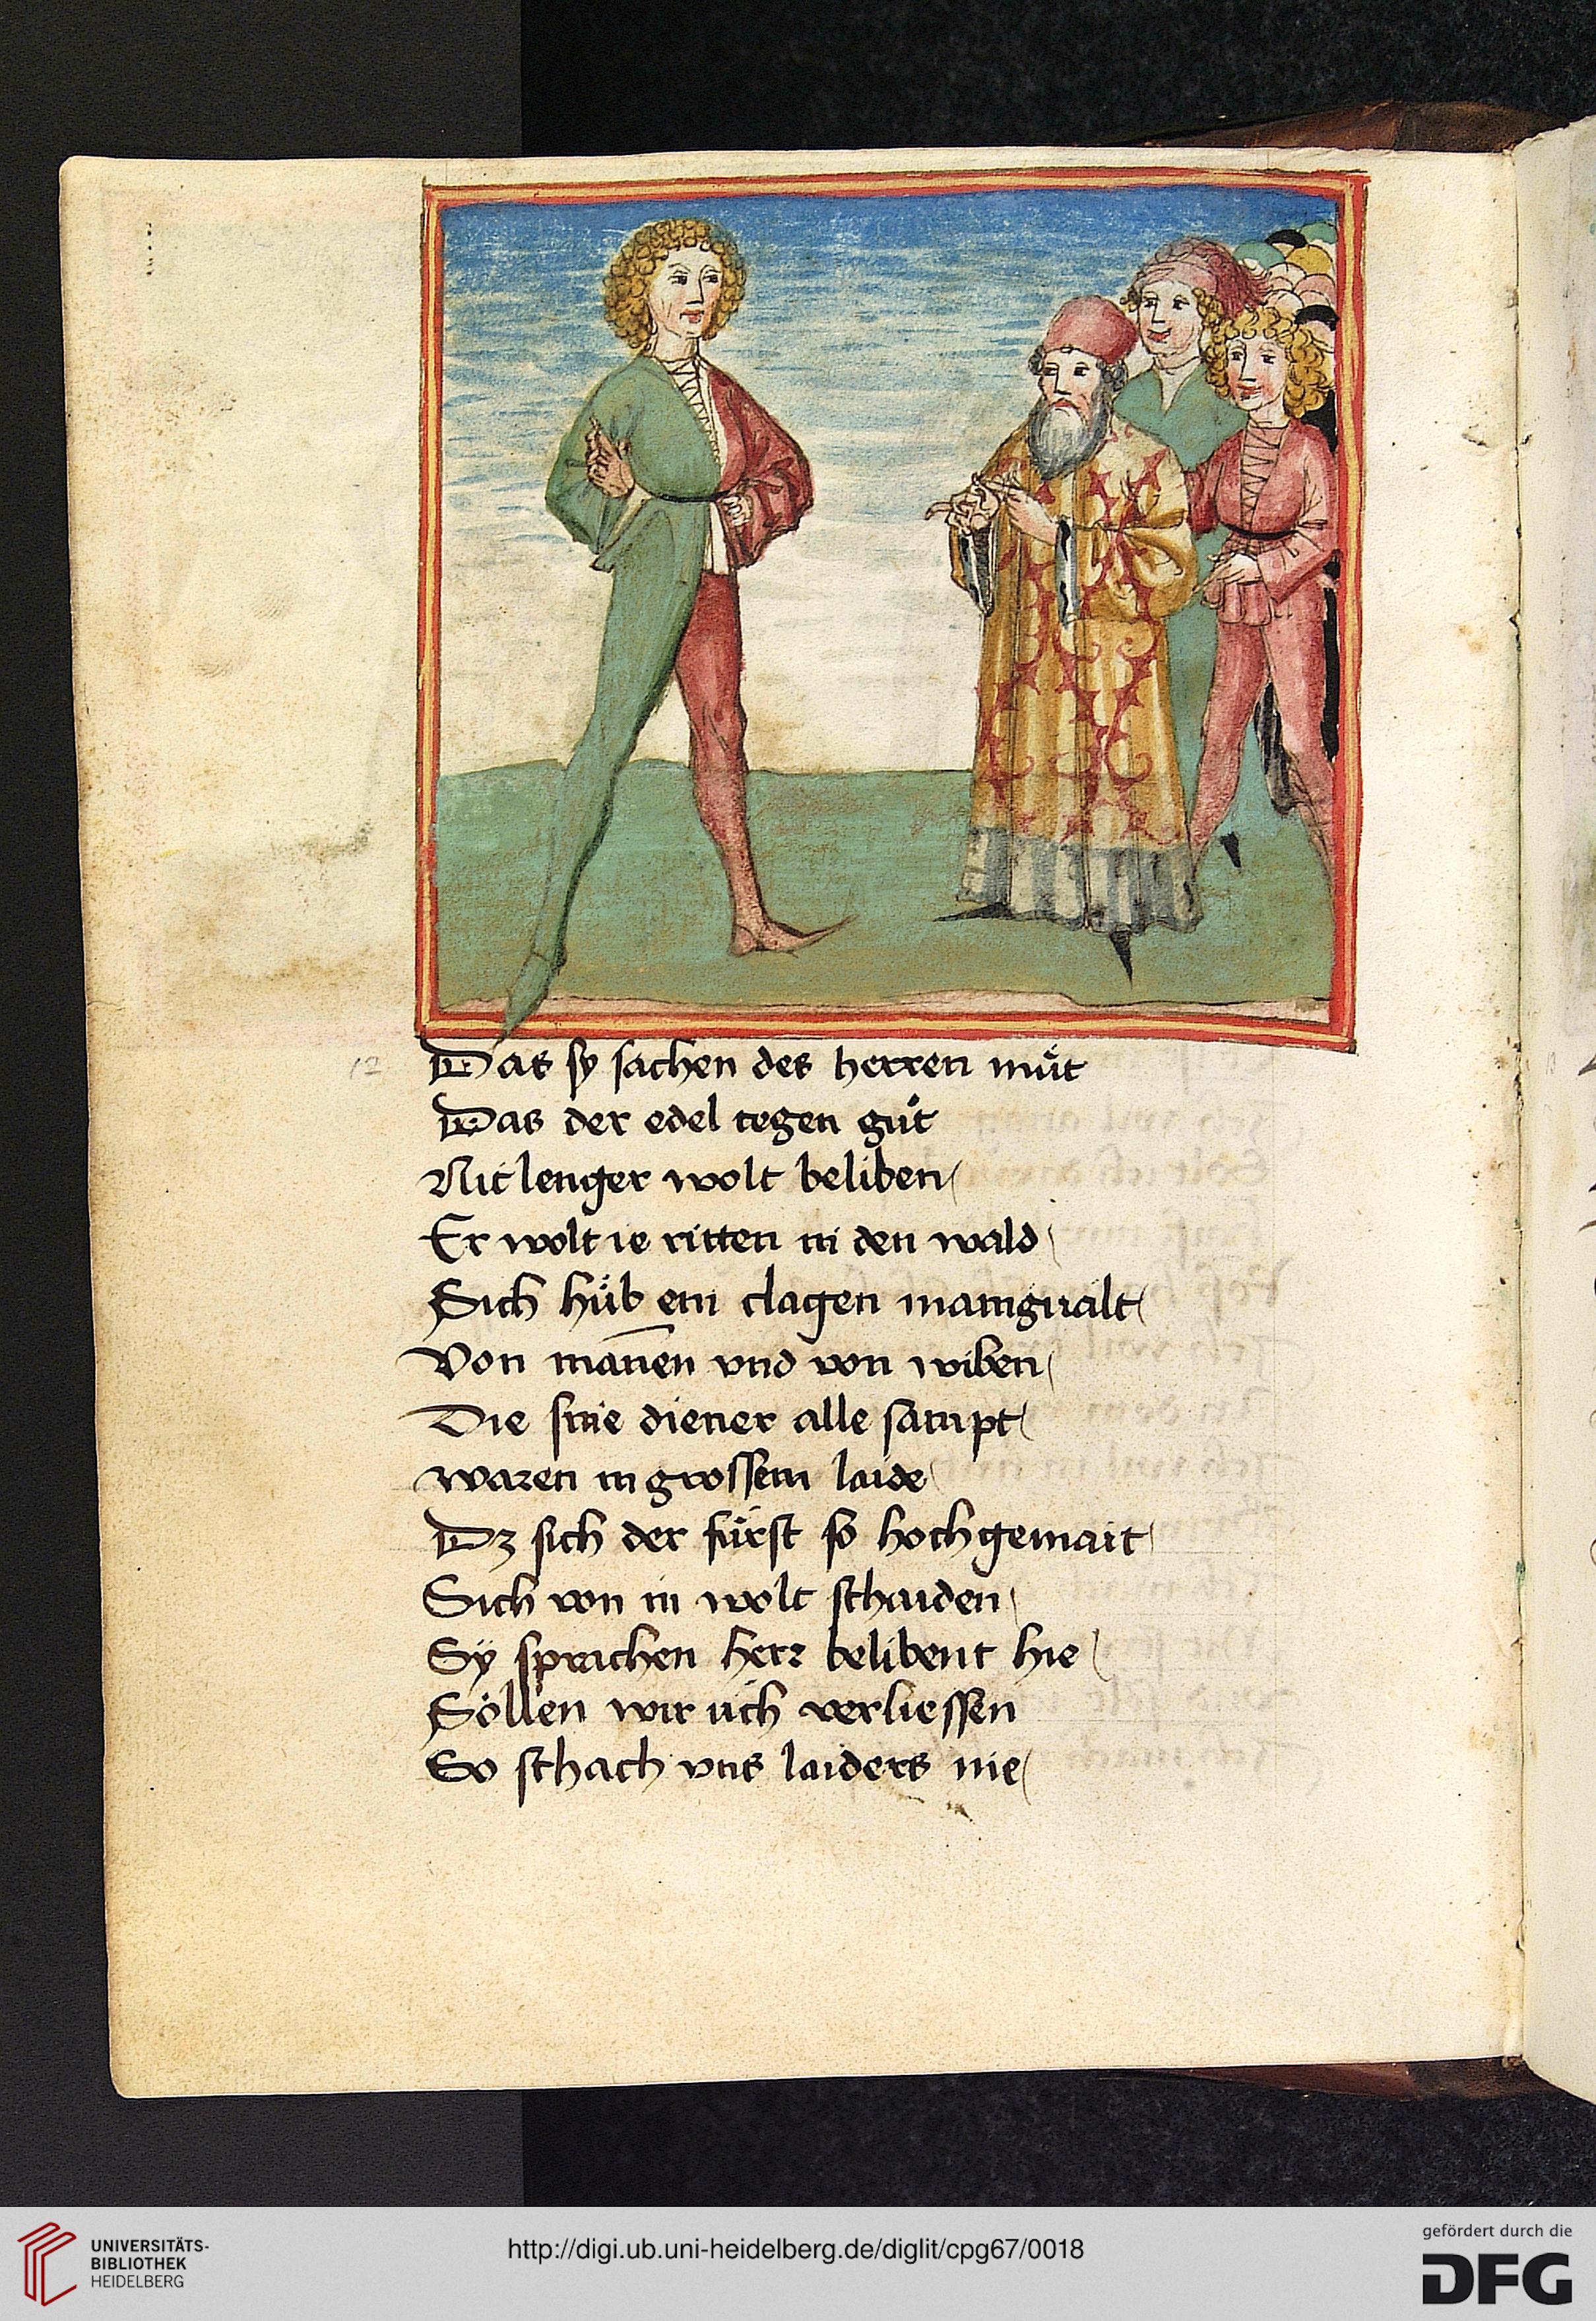 12
Das sy sachen des herren mu̍t
Das der edel tegen gu̍t
Nit lenger wolt beliben
Er wolt ie ritten in den wald
Sich hu̍b ein clagen manigualt
Von man̄en vnd von wiben
Die sine diener alle sampt
waren in grossem laide
Dz sich der fürst so hochgemait
Sich von in wolt schaiden
Sÿ sprachen herr belibent hie
Söllen wir üch verliessen
So schach vns laiders nie
UNIVERSITÄTS-
BIBLIOTHEK
HEIDELBERG
http://digi.ub.uni-heidelberg.de/diglit/cpg67/0018
gefördert durch die
DFG